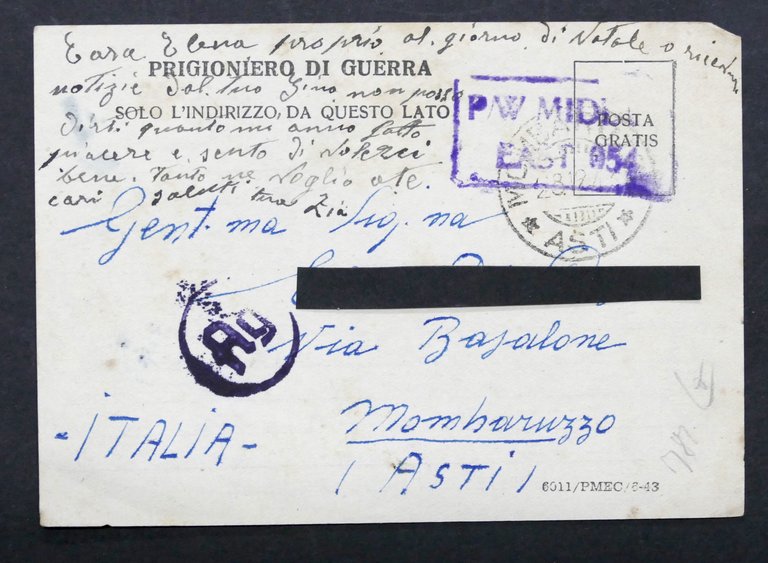 Cara Elena proprio al giorno di Natale o ricevuto
PRIGIONIERO DI GUERRA
notizie dal tuo Gino non posso
SOLO L'INDIRIZZO, DA QUESTO LATO
dirti quanto mi anno fatto
piacere e sento di
bene. Tanto ne voglio a te.
cari saluti tua Zia
P/W MIDDLE
EAST 954
POSTA
GRATIS
28.12.4
* ASTI *
Gent.ma Sig.na
Ag
Via Basalone
- ITALIA -
Mombaruzzo
(ASTI)
6011/PMEC/6-43